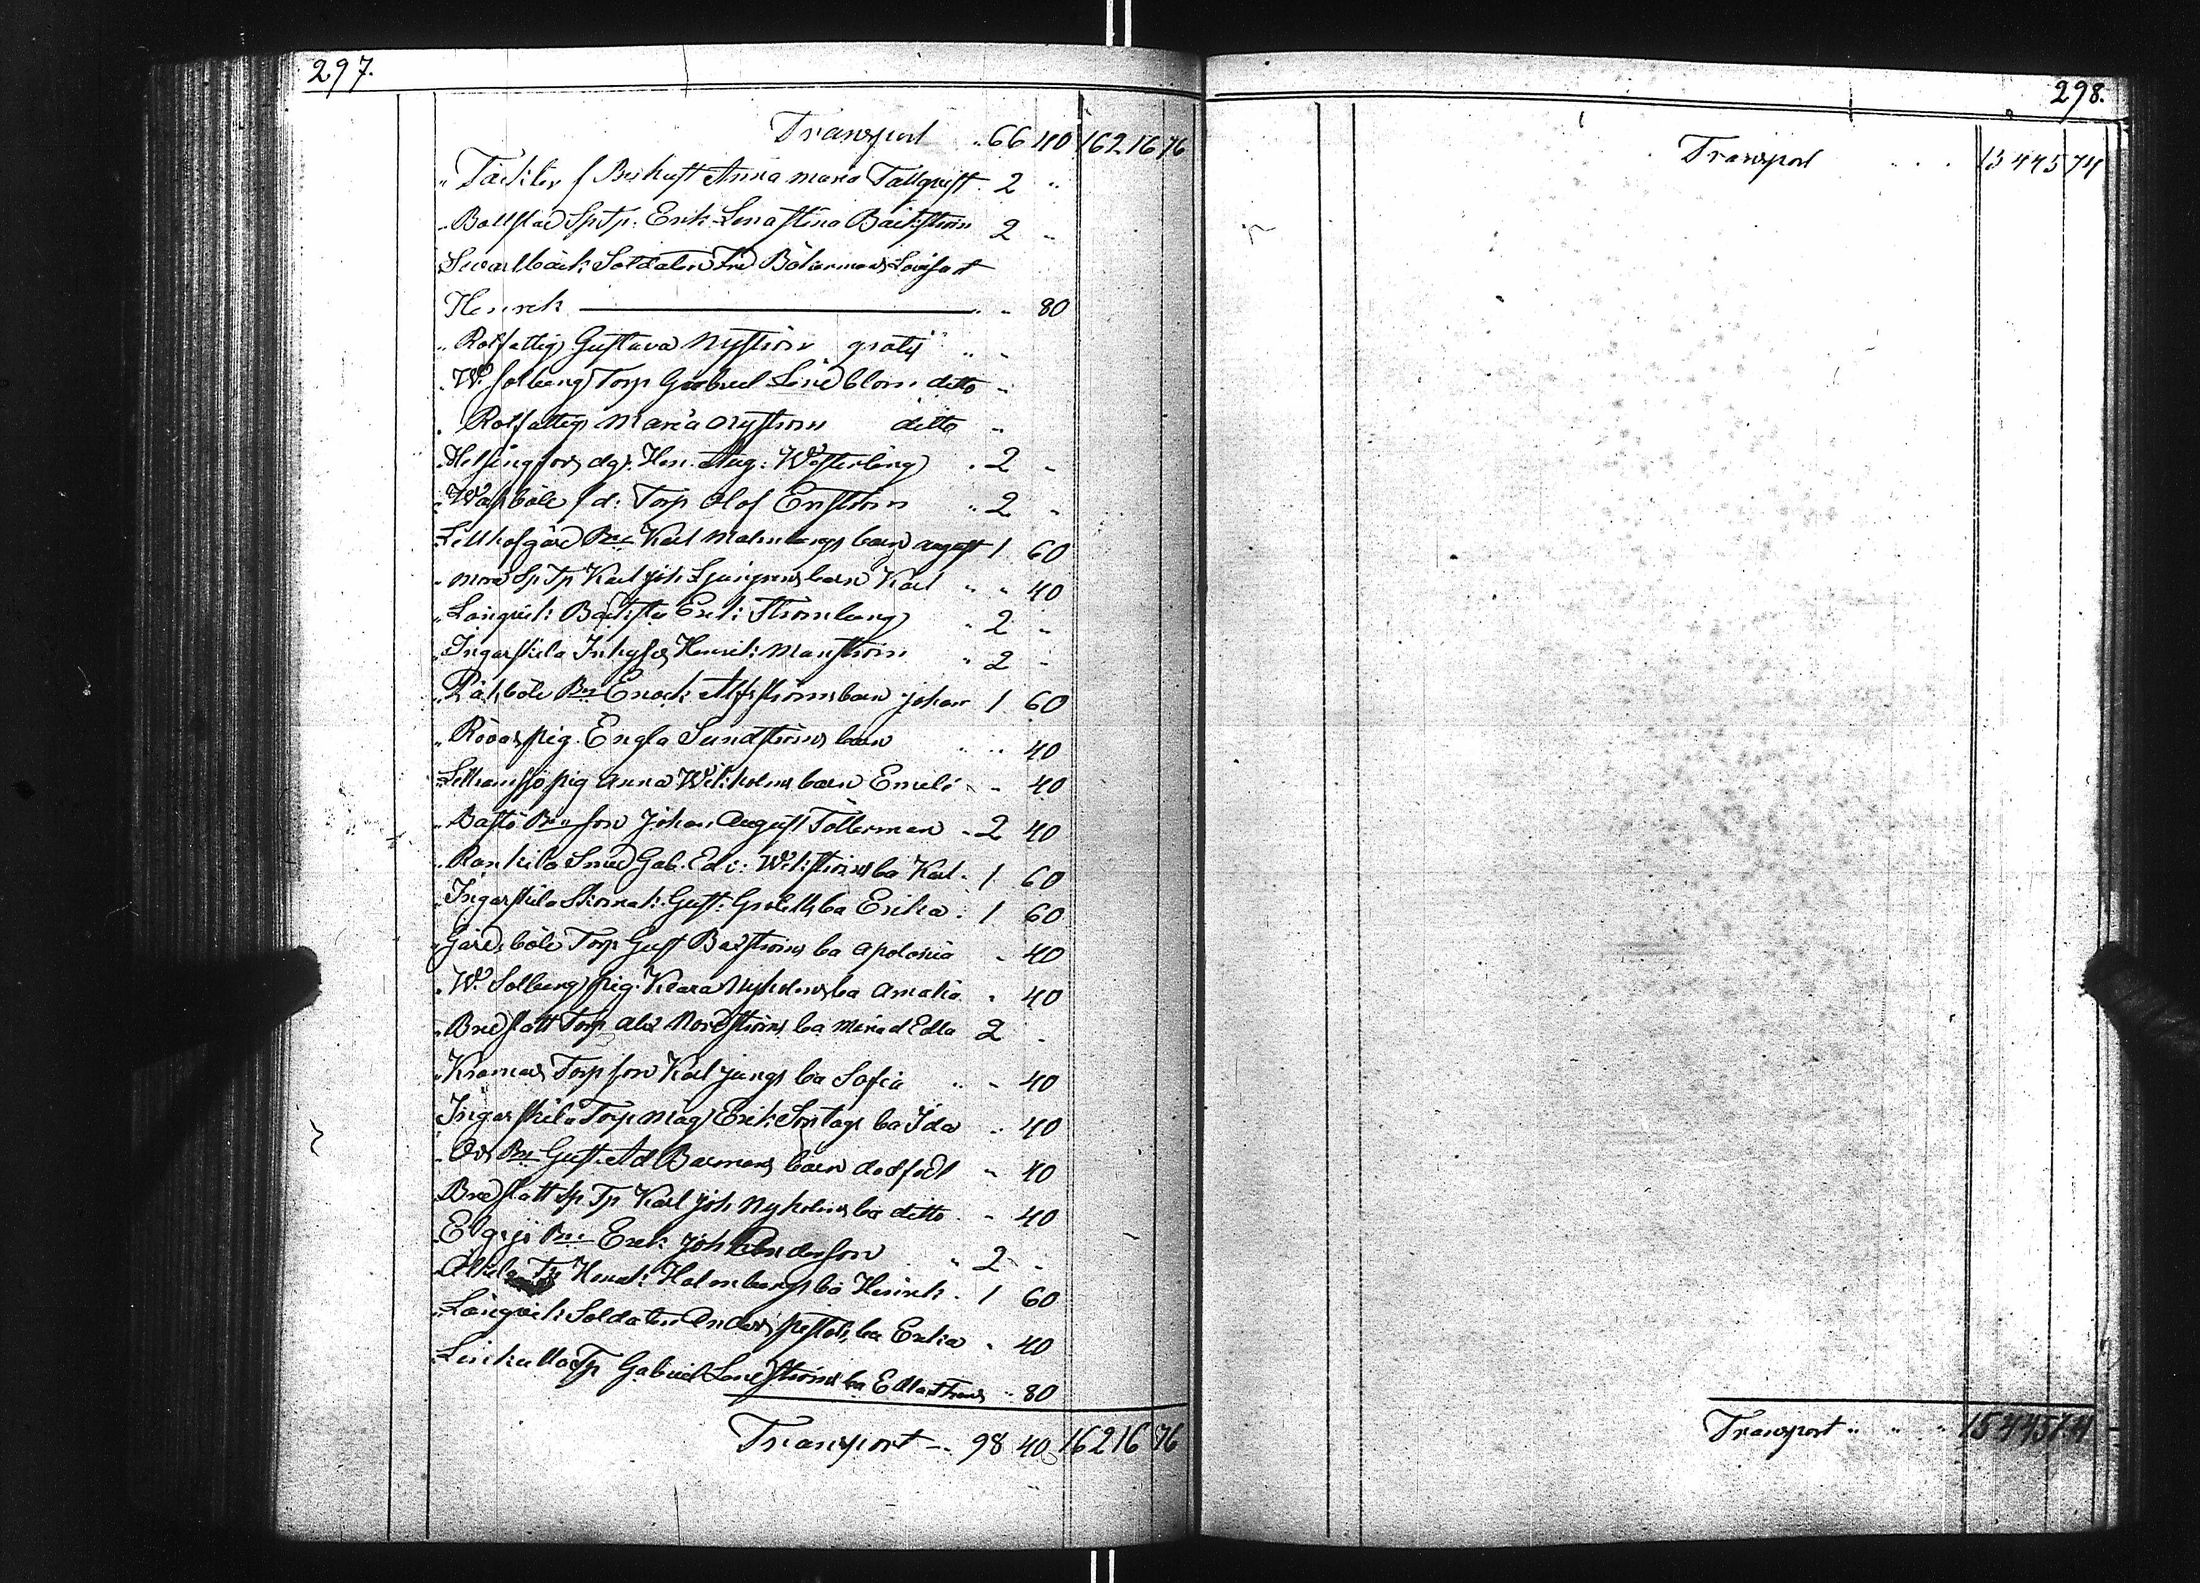 297.
Transport .. 66 40 16216 76
" Täckter f Bu hust Anna Maria Tallqvist. 2 "
" Bollstad Sp Tp. Erik Lena Stina Bäckström 2 "
Svartbäck Soldaten Fred
Henrik " " 80
" Rotfattig Gustava Nyström gratis " "
" W. Solberg Torp Gabriel Lindblom ditto "
" Rotfattig Maria Nyström ditto "
" Helsingfors dg. Hen. Aug: Westerberg " 2 "
" Wassböle f d: Torp Olof Enström " 2 "
" Lillhofgård Bn Karl Malmbergs barn August 1 60
" Mora Sp Tp Karl Joh Ljungrens barn Karl " " 40
" Långvik Erik Strömberg " 2 "
" Ingarskila Inhyses Henrik Manström " 2 "
" Täckböle Bn Enock Alfströms barn Johan 1 60
" Rövas pig. Engla Sundströms barn " " 40
" Lillramsjö pig Anna Wikholms barn Emeli " " 40
" Bastö Bn son Johan August Söderman " 2 40
" Rankila Smed Gab. Ed: Wikströms ba Karl " 1 60
" Ingarskila Gust: ba Erika " 1 60
" Gårdsböle Torp Gust Backströms ba Apolonia " 40
" W. Solberg pig. Klara Nyholms ba Amalia " 40
" Bredslätt Torp Alex Nordströms ba Maria o Edla 2 "
" Kramas Torp son Karl Ljungs ba Sofia " " 40
" Ingarskila Torp måg Erik Sontags ba Ida " 40
" Ors Bn Gust. Ad Barmans barn dödfödt " 40
" Bredslätt Sp Tp Karl Joh Nyholms ba ditto " 40
" Elgsjö Bn Erik Joh Anderson " 2 "
" Tp Henrik Holmbergs ba Henrik " 1 60
" Långvik Soldaten Anders ba Erika " 40
" Linkulla Tp Gabriel Lindströms ba Edla o Frans " 80
Transport " 98 40 16216 76
298.
Transport . . . 15445 74
Transport " " " 15445 74